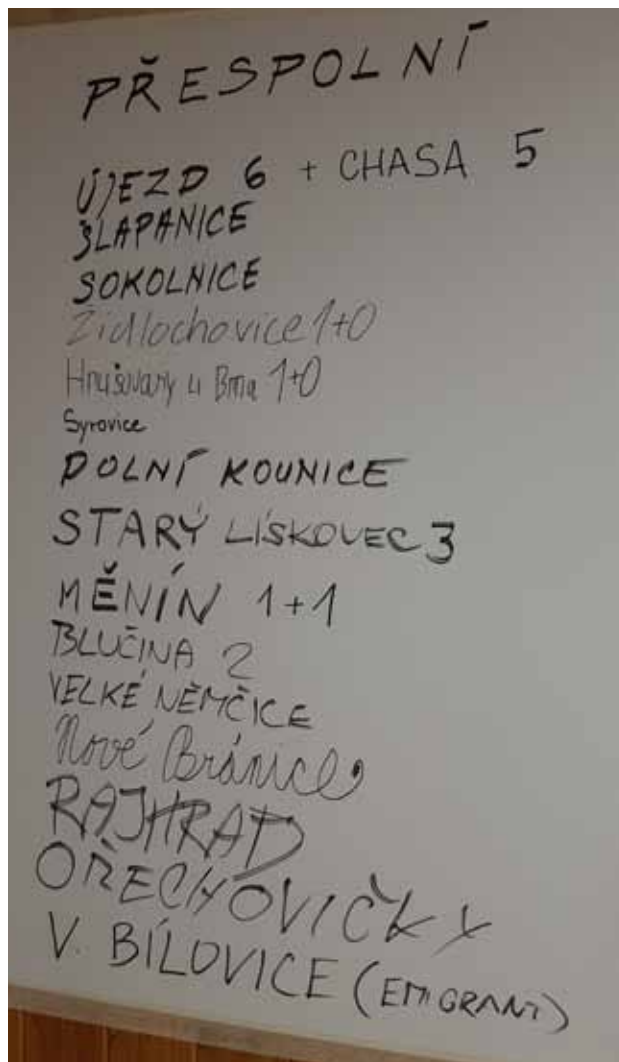 PŘESPOLNÍ
ÚJEZD 6 + CHASA 5
ŠLAPANICE
SOKOLNICE
Židlochovice 1+0
Hrušovany u Brna 1+0
Syrovice
DOLNÍ KOUNICE
STARÝ LÍSKOVEC 3
MĚNÍN 1+1
BLUČINA 2
VELKÉ NĚMČICE
Nové Bránice
RAJHRAD
OŘECHOVIČKY
V. BÍLOVICE (EMIGRANT)